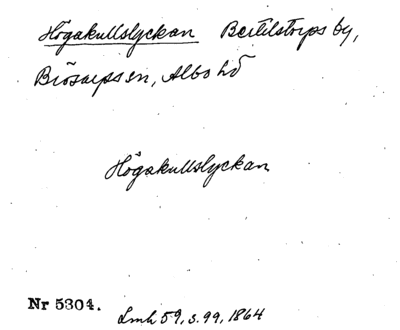 Högakullslyckan Bertilstorps by,
Brösarps sn, Albo hd
Högakullslyckan
Nr 5304.
Lmh 59, s. 99, 1864